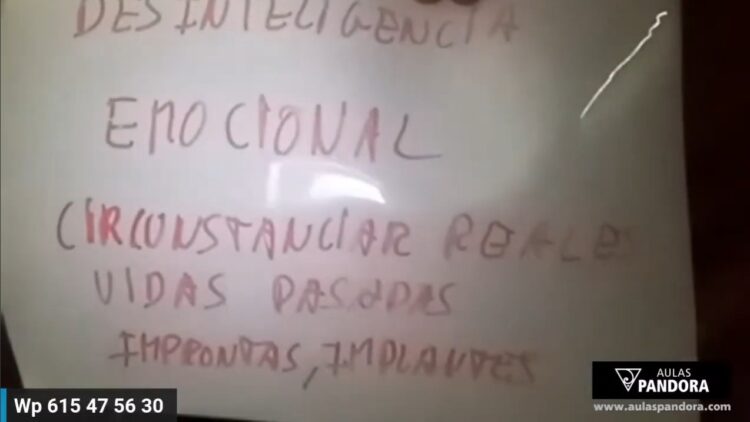 DESINTELIGENCIA
EMOCIONAL
CIRCONSTANCIAR REALES
VIDAS PASADAS
IMPRONTAS, IMPLANTES
AULAS
PANDORA
www.aulaspandora.com
Wp 615 47 56 30